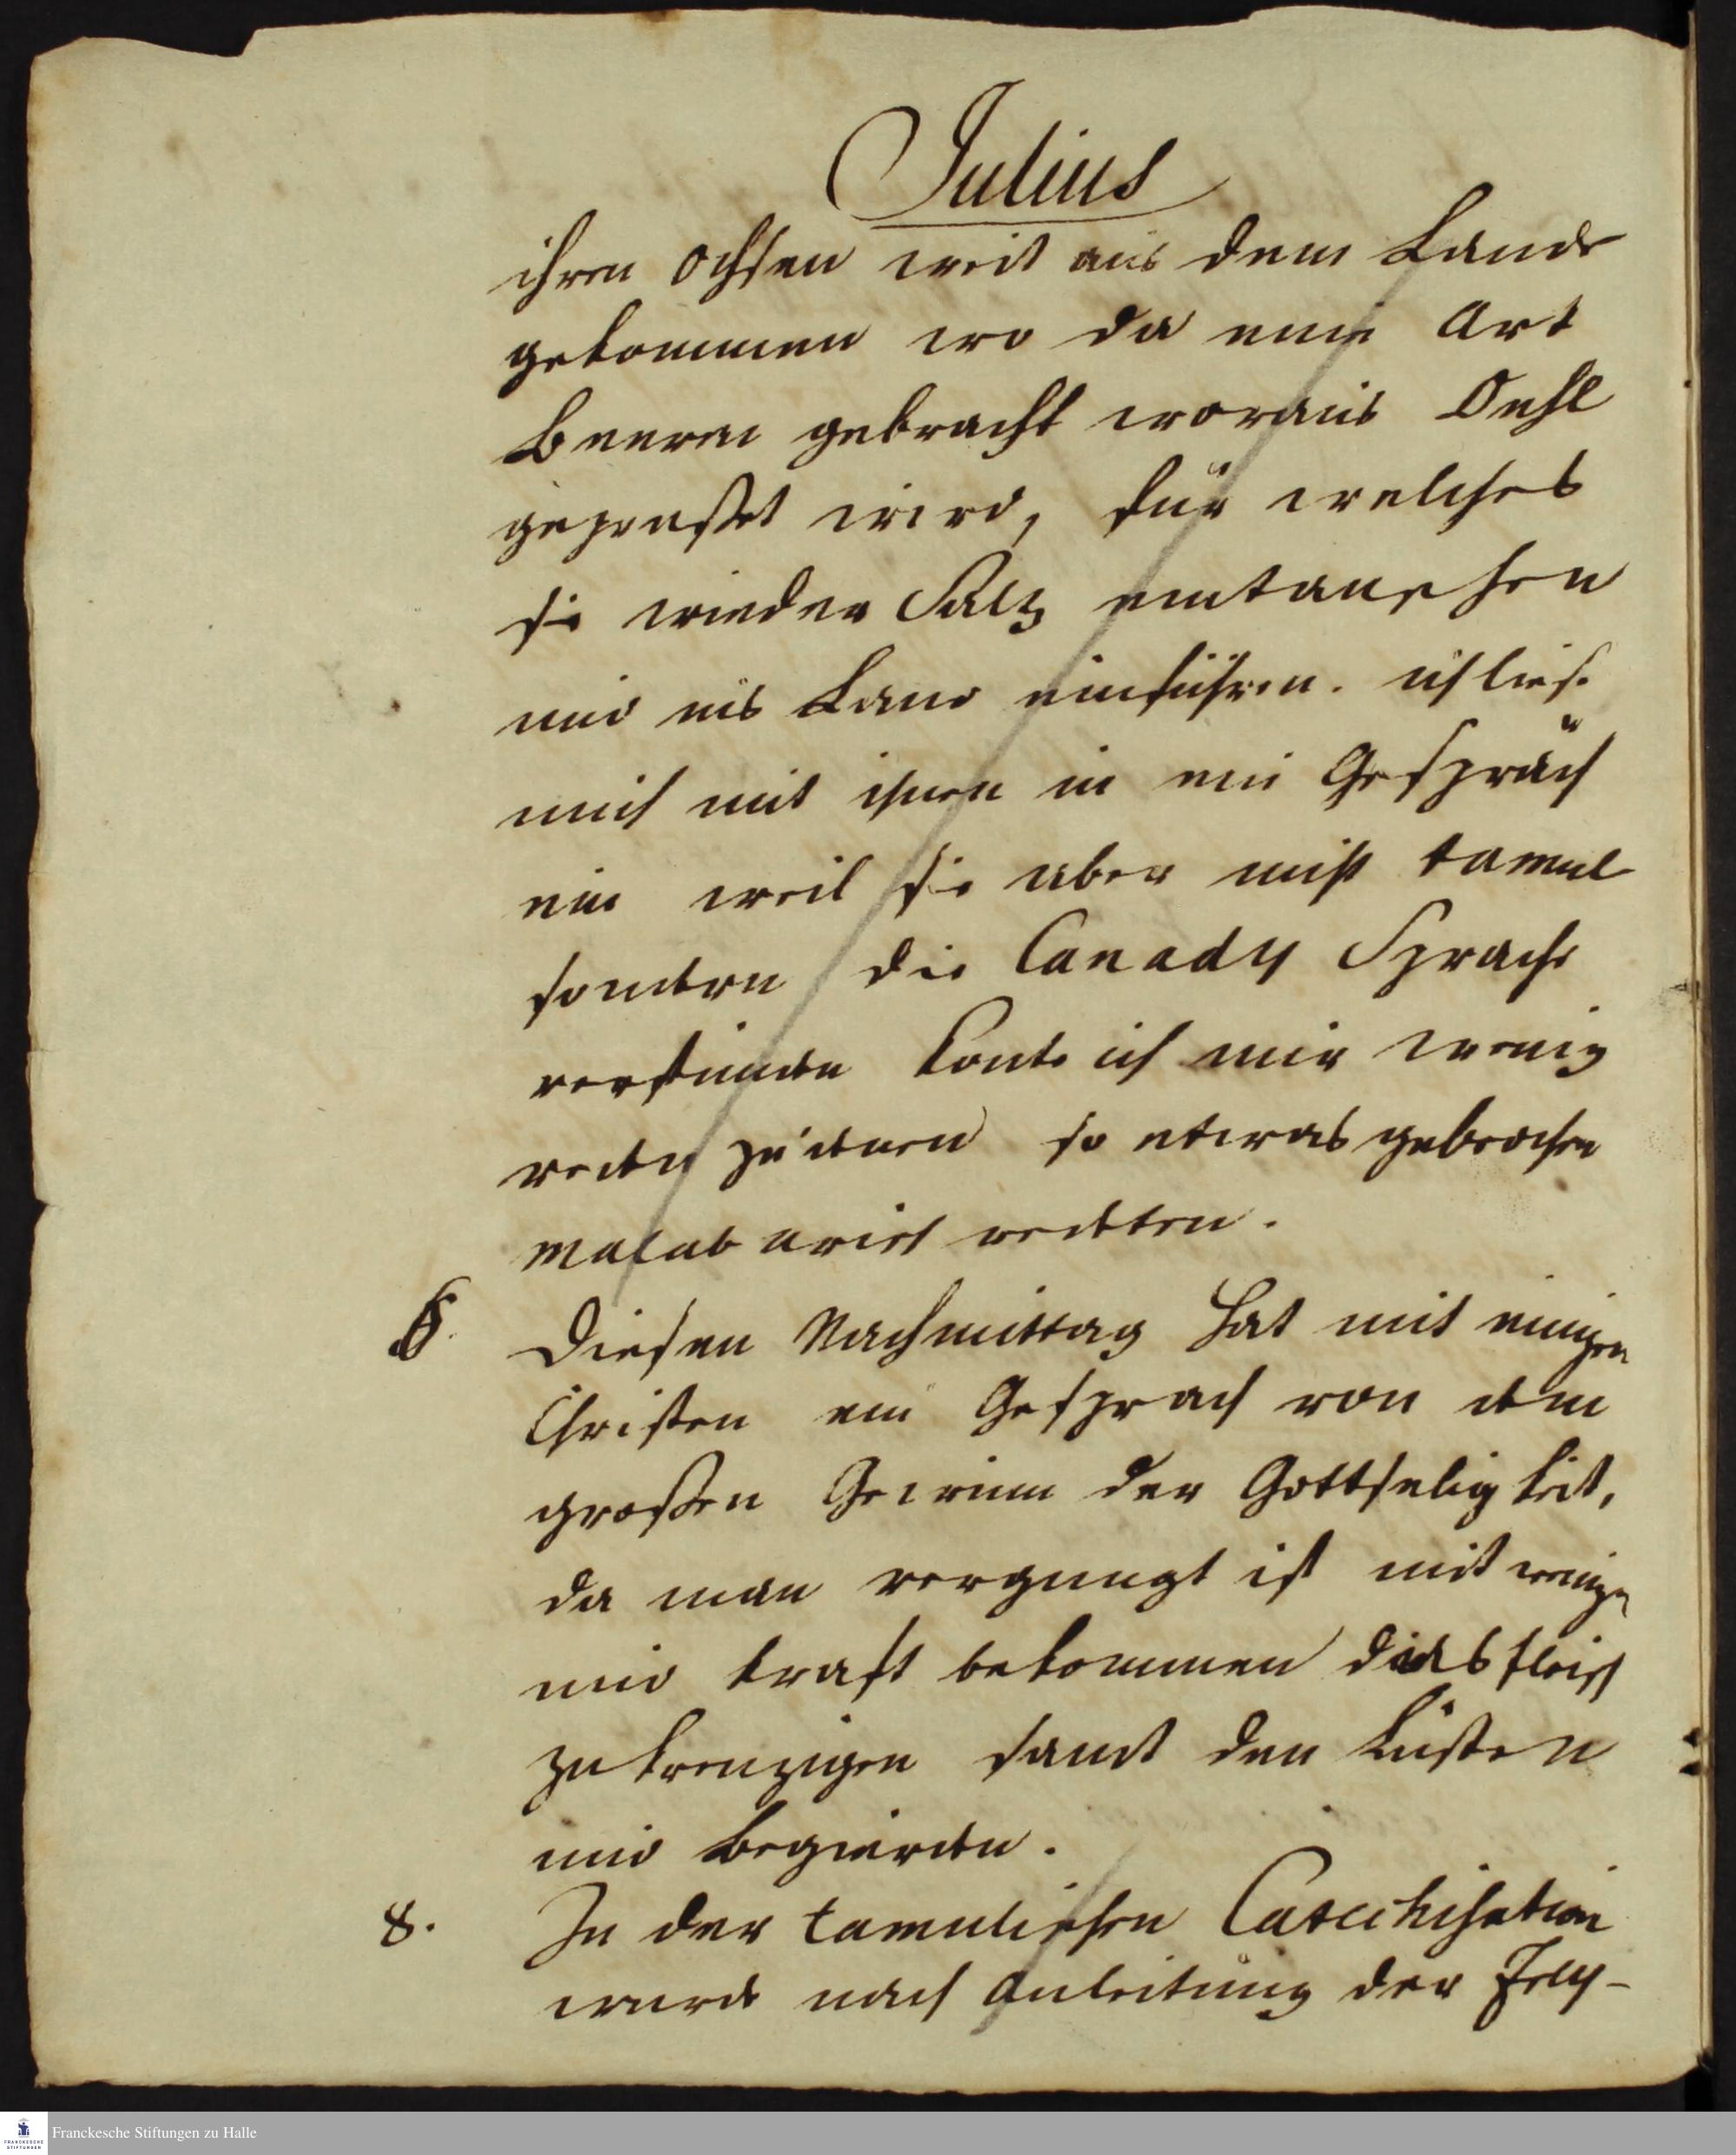 Julius
ihren Ochsen weit aus dem Lande
gekommen wo da eine Art
Beeren gebracht woraus Oehl
gepresset wird, für welches
sie wieder Saltz eintauschen
und ins Land einführen. ich ließ
mich mit ihnen in ein Gespräch
ein weil sie aber nicht tamul
sondern die Canady Sprache
verstunden konte ich nur wenig
reden zu denen so etwas gebrochen
malabarisch redeten.
6. Diesen Nachmittag hat mit einigen
Christen ein Gesprach von dem
großen Gewinn der Gottseligkeit,
da man vergnugt ist mit wenigen
und kraft bekommen das fleisch
zu kreuzigen samt den Lüsten
und Begierden.
8. In der tamulischen Catechisation
wurde nach Anleitung der
Franckesche Stiftungen zu Halle
FRANCKESCHE
STIFTUNGEN